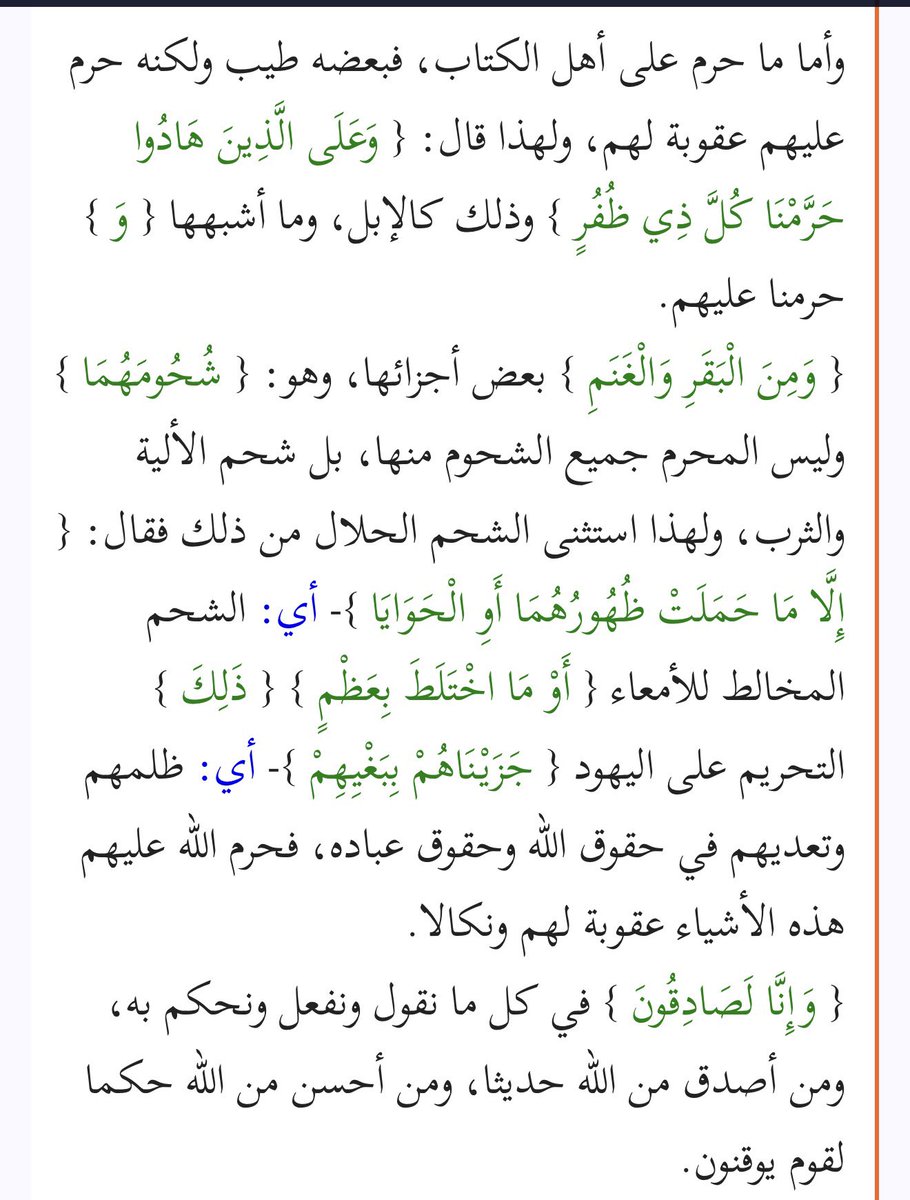 وأما ما حرم على أهل الكتاب، فبعضه طيب ولكنه حرم
عليهم عقوبة لهم، ولهذا قال: { وَعَلَى الَّذِينَ هَادُوا
حَرَّمْنَا كُلَّ ذِي ظُفُرٍ } وذلك كالإبل، وما أشبهها { وَ }
حرمنا عليهم.
{ وَمِنَ الْبَقَرِ وَالْغَنَمِ } بعض أجزائها، وهو: { شُحُومَهُمَا }
وليس المحرم جميع الشحوم منها، بل شحم الألية
والثرب، ولهذا استثنى الشحم الحلال من ذلك فقال: {
إِلَّا مَا حَمَلَتْ ظُهُورُهُمَا أَوِ الْحَوَايَا }- أي: الشحم
المخالط للأمعاء { أَوْ مَا اخْتَلَطَ بِعَظْمٍ } { ذَلِكَ }
التحريم على اليهود { جَزَيْنَاهُمْ بِبَغْيِهِمْ }- أي: ظلمهم
وتعديهم في حقوق الله وحقوق عباده، فحرم الله عليهم
هذه الأشياء عقوبة لهم ونكالا.
{ وَإِنَّا لَصَادِقُونَ } في كل ما نقول ونفعل ونحكم به،
ومن أصدق من الله حديثا، ومن أحسن من الله حكما
لقوم يوقنون.